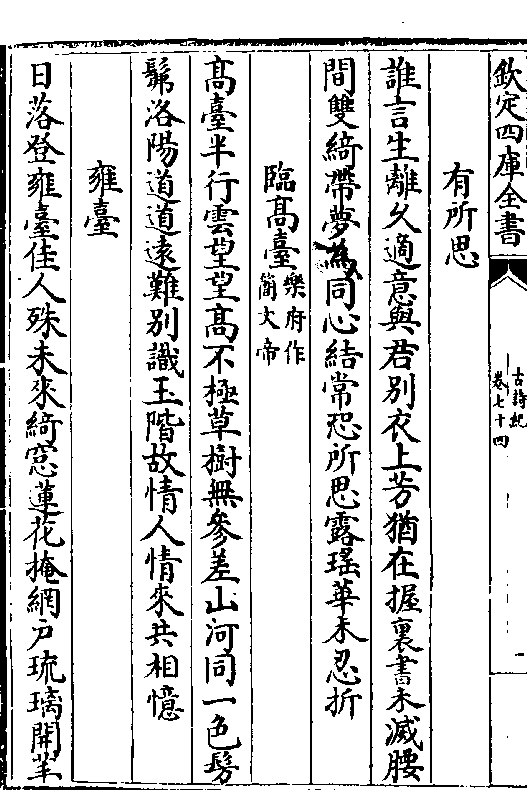 欽定四庫全書
古詩紀
卷七十四
有所思
誰言生離久適意與君别衣上芳猶在握裏書未滅腰
間雙綺帶夢為同心結常恐所思露瑤華未忍折
臨髙臺樂府作簡文帝
髙臺半行雲望望髙不極草樹無參差山河同一色髣
髴洛陽道道逺難别識玉階故情人情來共相憶
雍臺
日落登雍臺佳人殊未來綺窓蓮花掩網戶琉璃開苯